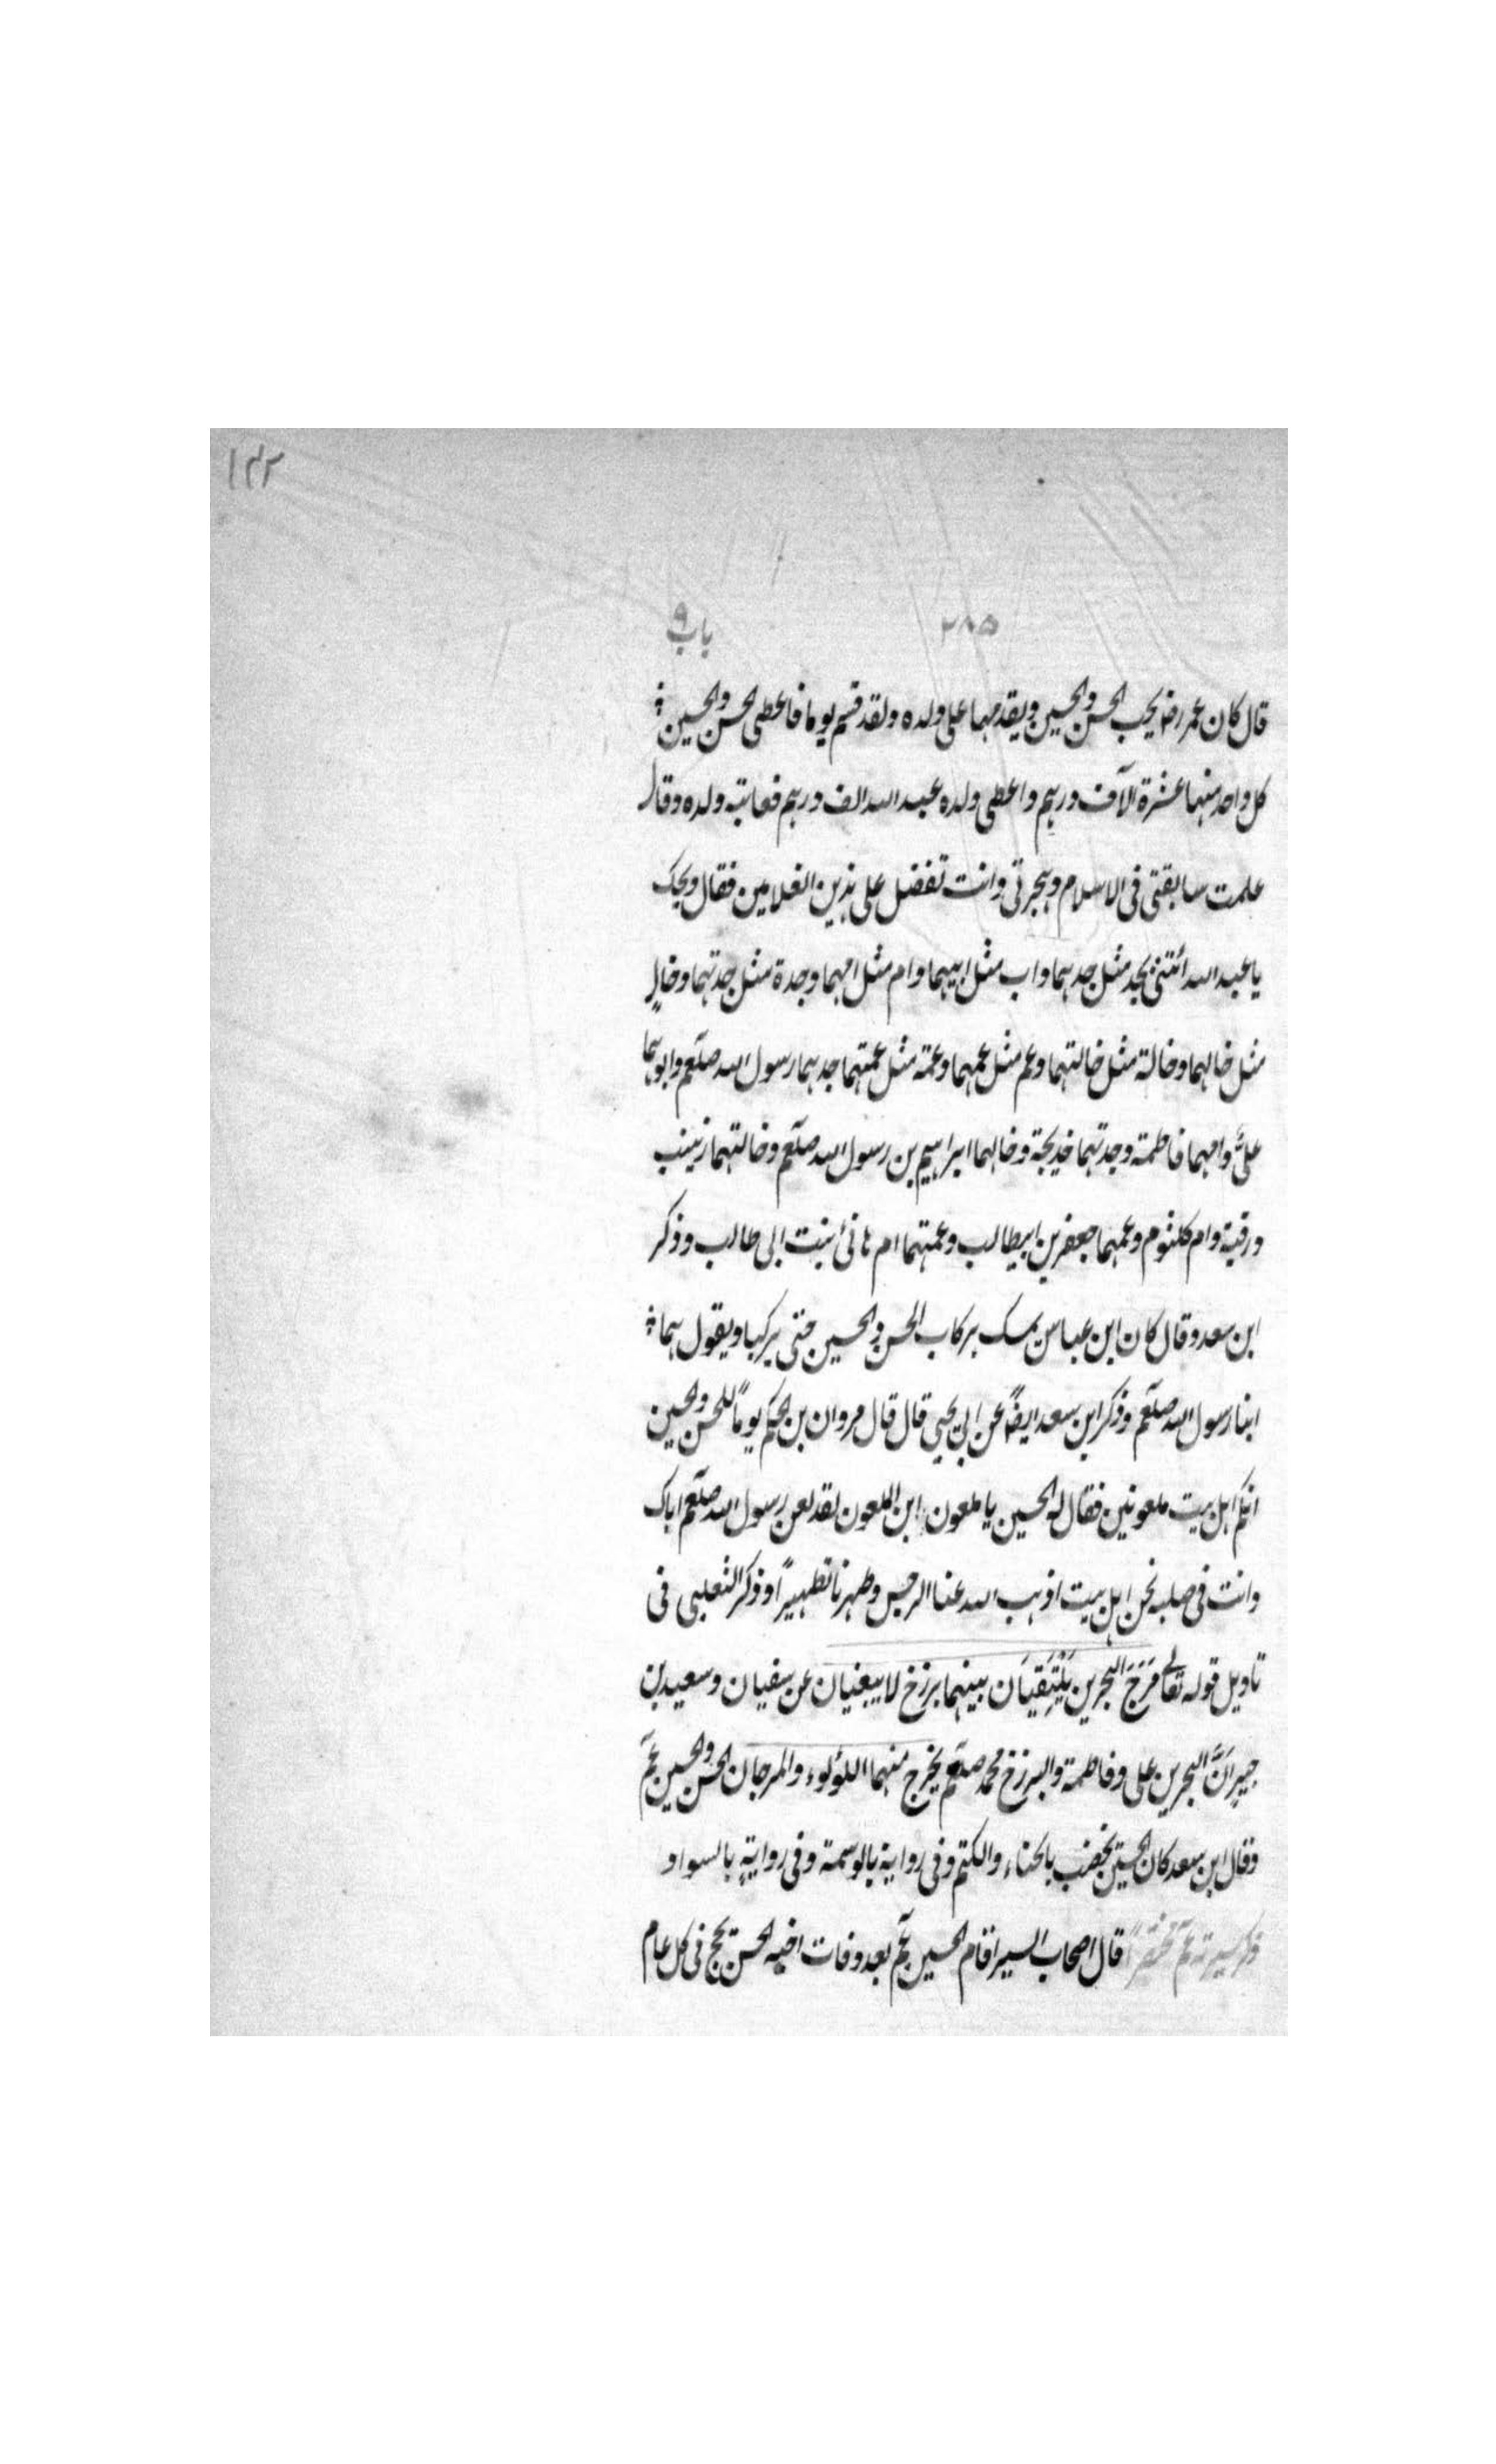 ١٤٢
٢٨٥ باب ٩
قال كان عمر رضه يحب الحسن والحسين ويقدمهما على ولده ولقد قسم يوما فاعطى الحسن والحسين
كل واحد منهما عشرة آلاف درهم واعطى ولده عبد الله الف درهم فعاتبه ولده وقال
علمت سابقتى فى الاسلام وهجرتى وانت تفضل على هذين الغلامين فقال ويحك
يا عبد الله ائتنى بجد مثل جدهما واب مثل ابيهما وام مثل امهما وجدة مثل جدتهما وخالٍ
مثل خالهما وخالة مثل خالتهما وعم مثل عمهما وعمة مثل عمتهما جدهما رسول الله صلعم وابوهما
علىٌّ وامهما فاطمة وجدتهما خديجة وخالهما ابراهيم بن رسول الله صلعم وخالتهما زينب
ورقية وام كلثوم وعمهما جعفر بن ابيطالب وعمتهما ام هانئ بنت ابى طالب وذكر
ابن سعد وقال كان ابن عباس يمسك بركاب الحسن والحسين حتى يركبا ويقول هما
ابنا رسول الله صلعم وذكر ابن سعد ايضًا عن ابى يحيى قال قال مروان بن الحكم يوماً للحسن والحسين
انكم اهل بيت ملعونين فقال له الحسين يا ملعون ابن الملعون لقد لعن رسول الله صلعم اباك
وانت فى صلبه نحن اهل بيت اذهب الله عنا الرجس وطهرنا تطهيرًا وذكر الثعلبى فى
تاويل قوله تعالى مَرَجَ البحرين يَلْتَقِيَان بينهما برزخ لا يبغيان عن سفيان وسعيد بن
جبير اَنَّ البحرين على وفاطمة والبرزخ محمد صلعم يخرج منهما اللؤلوء والمرجان الحسن والحسين عم
وقال ابن سعد كان الحسين يخضب بالحناء والكتم وفى رواية بالوسمة وفى روايةٍ بالسواد
ذكر سيرته عم مختصرًا قال اصحاب السير اقام الحسين عم بعد وفات اخيه الحسن يحج فى كل عام